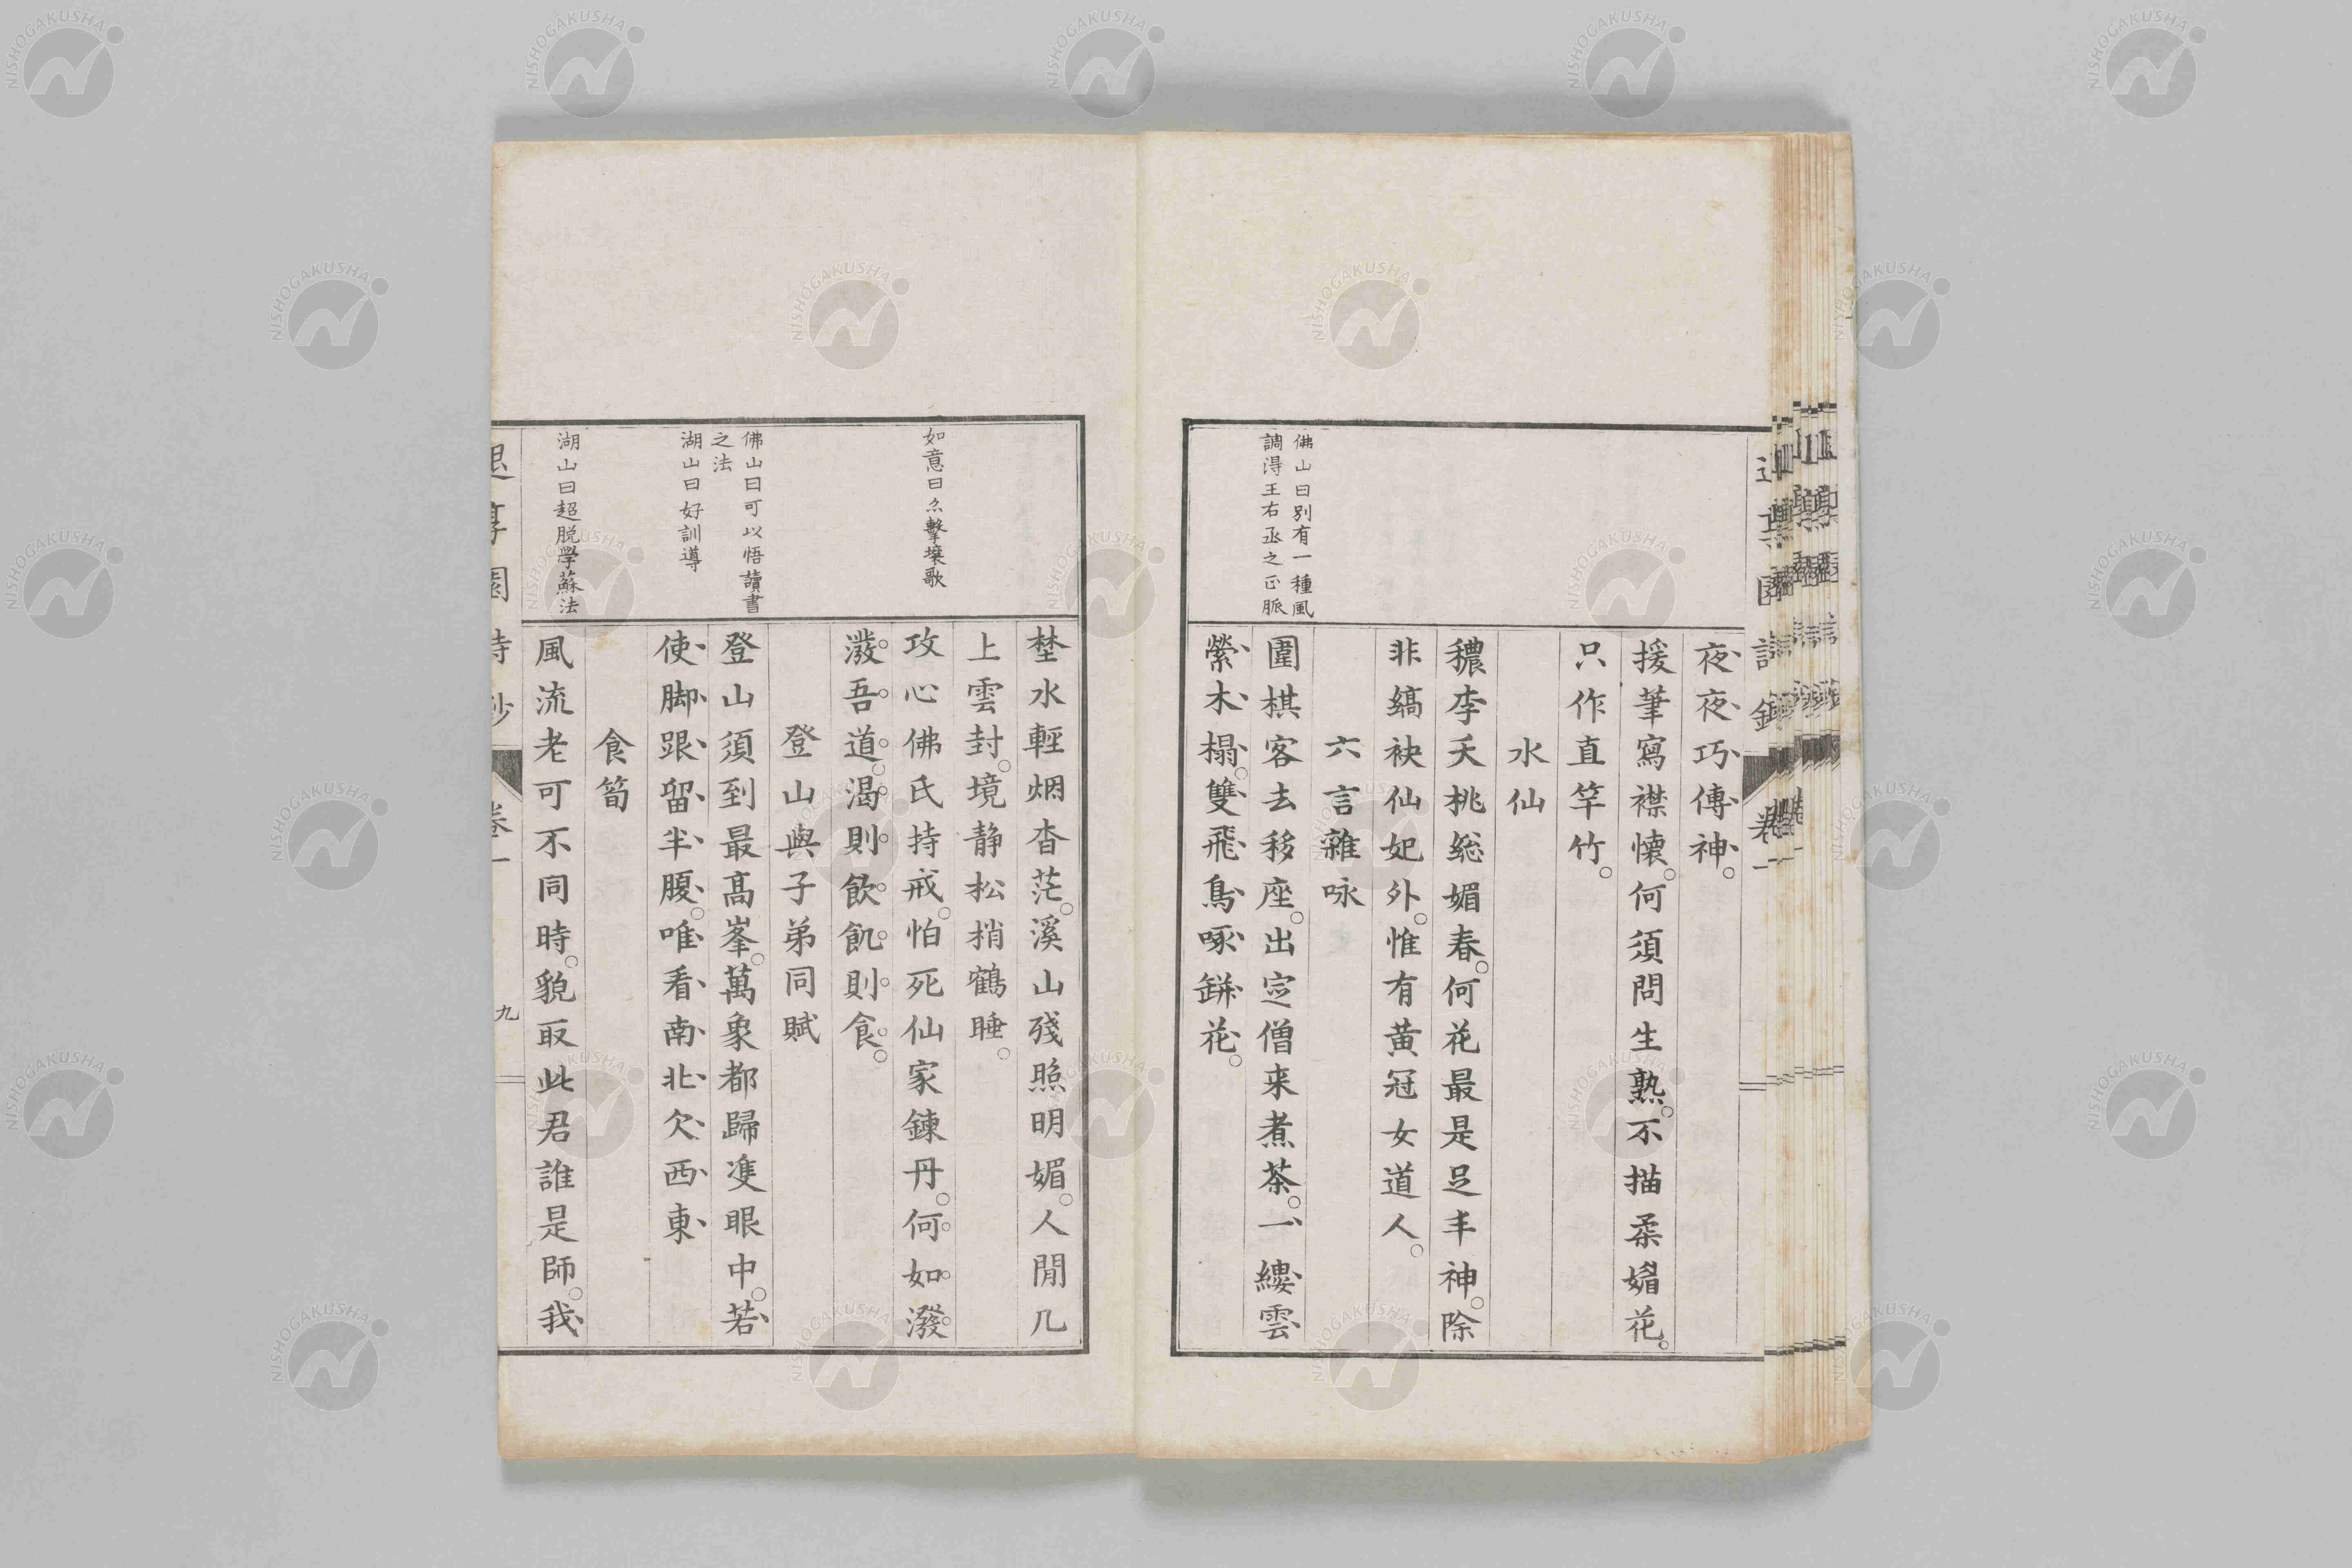 夜夜巧傳神。
援筆寫襟懷。何須問生熟。不描柔媚花。
只作直竿竹。
水仙
穠李夭桃総媚春。何花最是足丰神。除
非縞袂仙妃外。惟有黄冠女道人。
六言雜咏
佛山曰別有一種風
調得王右丞之正脈
圍棋客去移座。出定僧来煮茶。一縷雲
縈木榻。雙飛鳥啄缾花。
埜水輕烟杳茫。溪山殘照明媚。人閒几
上雲封。境静松梢鶴睡。
如意曰亦擊壤歌
攻心佛氏持戒。怕死仙家錬丹。何如潑
潑吾道。渴則飲飢則食。
登山與子弟同賦
佛山曰可以悟讀書
之法
登山須到最高峯。萬象都歸隻眼中。若
湖山曰好訓導
使脚跟留半腹。唯看南北欠西東
食筍
湖山曰超脱學蘇法
風流老可不同時。貌取此君誰是師。我
卷一
九
NISHOGAKUSHA